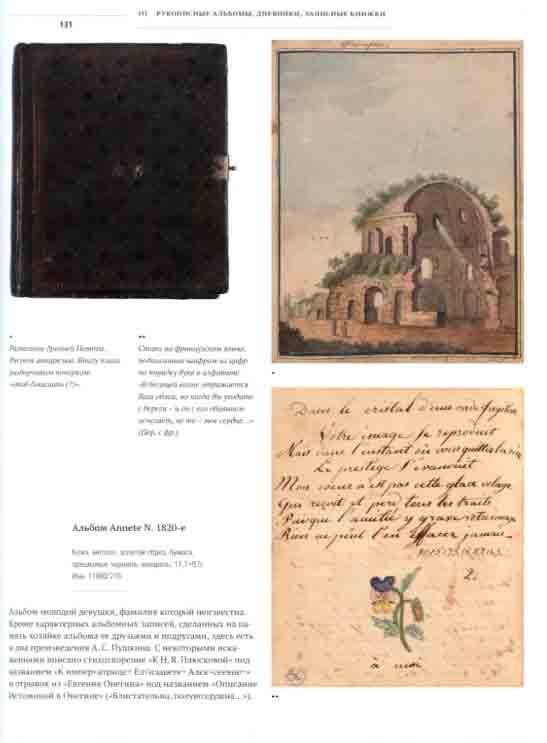 III РУКОПИСНЫЕ АЛЬБОМЫ, ДНЕВНИКИ, ЗАПИСНЫЕ КНИЖКИ
131
•
Развалины древней
Рисунок акварелью. Внизу плохо
разборчивым почерком:
(?)».
••
Стихи на французском языке,
подписанные шифром из цифр
по порядку букв в алфавите:
«В бегущей волне отражается
Ваш облик, но когда Вы уходите
с берега – и он
исчезает, не то – мое сердце...»
(Пер. с фр.)
•
Dans le cristal d'une onde fugitive
Votre image se reproduit
Mais dans l'instant où vous quittez la rive
Le prestige s'évanouit
Mon coeur n'est pas cette glace volage
Qui reçoit et perd tous les traits
Puisque l'amitié y grava votre image
Rien ne peut l'en effacer jamais
à moi
••
Альбом Annete N. 1820-е
Кожа, металл, золотой обрез, бумага,
чернила, акварель; 11,7×9,5
Альбом молодой девушки, фамилия которой неизвестна.
Кроме характерных альбомных записей, сделанных на па-
мять хозяйке альбома ее друзьями и подругами, здесь есть
и два произведения А. С. Пушкина. С некоторыми иска-
жениями вписано стихотворение «К Н. Я. Плюсковой» под
названием «К императрице? Елизавете? Алексеевне?»
и отрывок из «Евгения Онегина» под названием «Описание
Истоминой в Онегине» («Блистательна, полувоздушна...»).